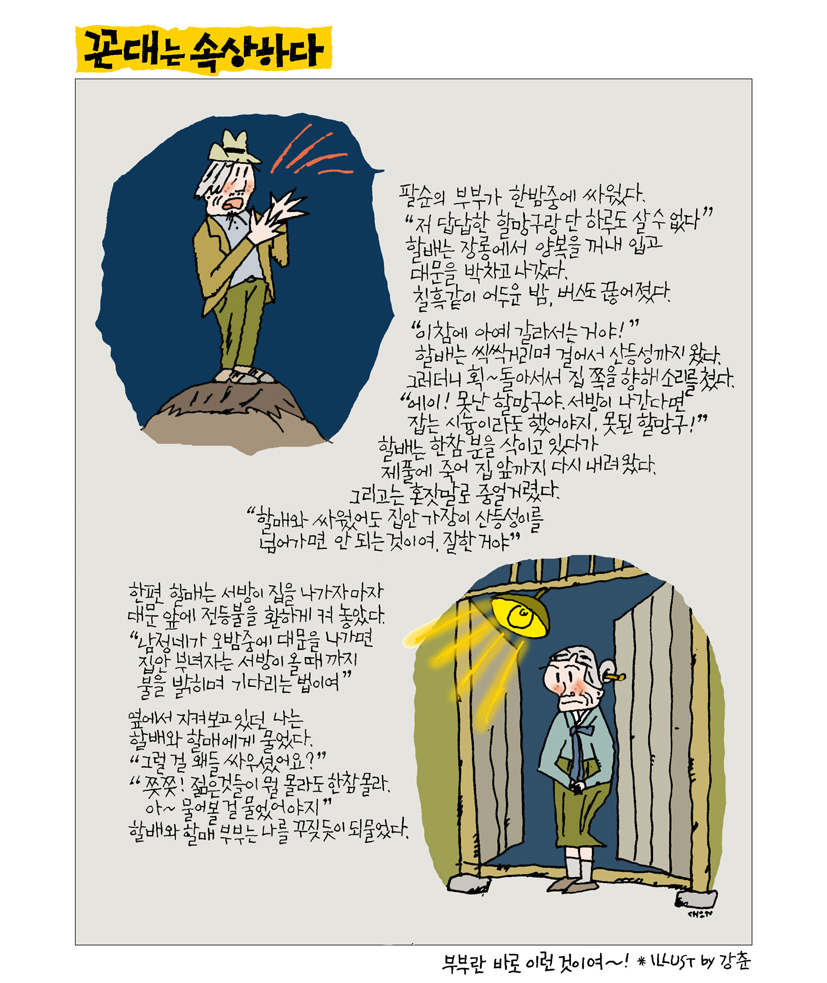 꼰대는 속상하다
팔순의 부부가 한밤중에 싸웠다.
"저 답답한 할망구랑 단 하루도 살 수 없다"
할배는 장롱에서 양복을 꺼내 입고
대문을 박차고 나갔다.
칠흑같이 어두운 밤, 버스도 끊어졌다.
"이참에 아예 갈라서는거야!"
할배는 씩씩거리며 걸어서 산등성까지 왔다.
그러더니 획~돌아서서 집 쪽을 향해 소리를 쳤다.
"에이! 못난 할망구야. 서방이 나간다면
잡는 시늉이라도 했어야지, 못된 할망구!"
할배는 한참 분을 삭이고 있다가
제풀에 죽어 집 앞까지 다시 내려왔다.
그리고는 혼잣말로 중얼거렸다.
"할매와 싸웠어도 집안 가장이 산등성이를
넘어가면 안 되는 것이여. 잘한 거야"
한편 할매는 서방이 집을 나가자마자
대문 앞에 전등불을 환하게 켜 놓았다.
"남정네가 오밤중에 대문을 나가면
집안 부녀자는 서방이 올 때 까지
불을 밝히며 기다리는 법이여"
옆에서 지켜보고 있던 나는
할배와 할매에게 물었다.
"그럴 걸 왜들 싸우셨어요?"
"쯧쯧! 젊은것들이 뭘 몰라도 한참 몰라.
아~ 물어볼 걸 물었어야지"
할배와 할매 부부는 나를 꾸짖듯이 되물었다.
부부란 바로 이런 것이여~! *ILLUST by 강춘